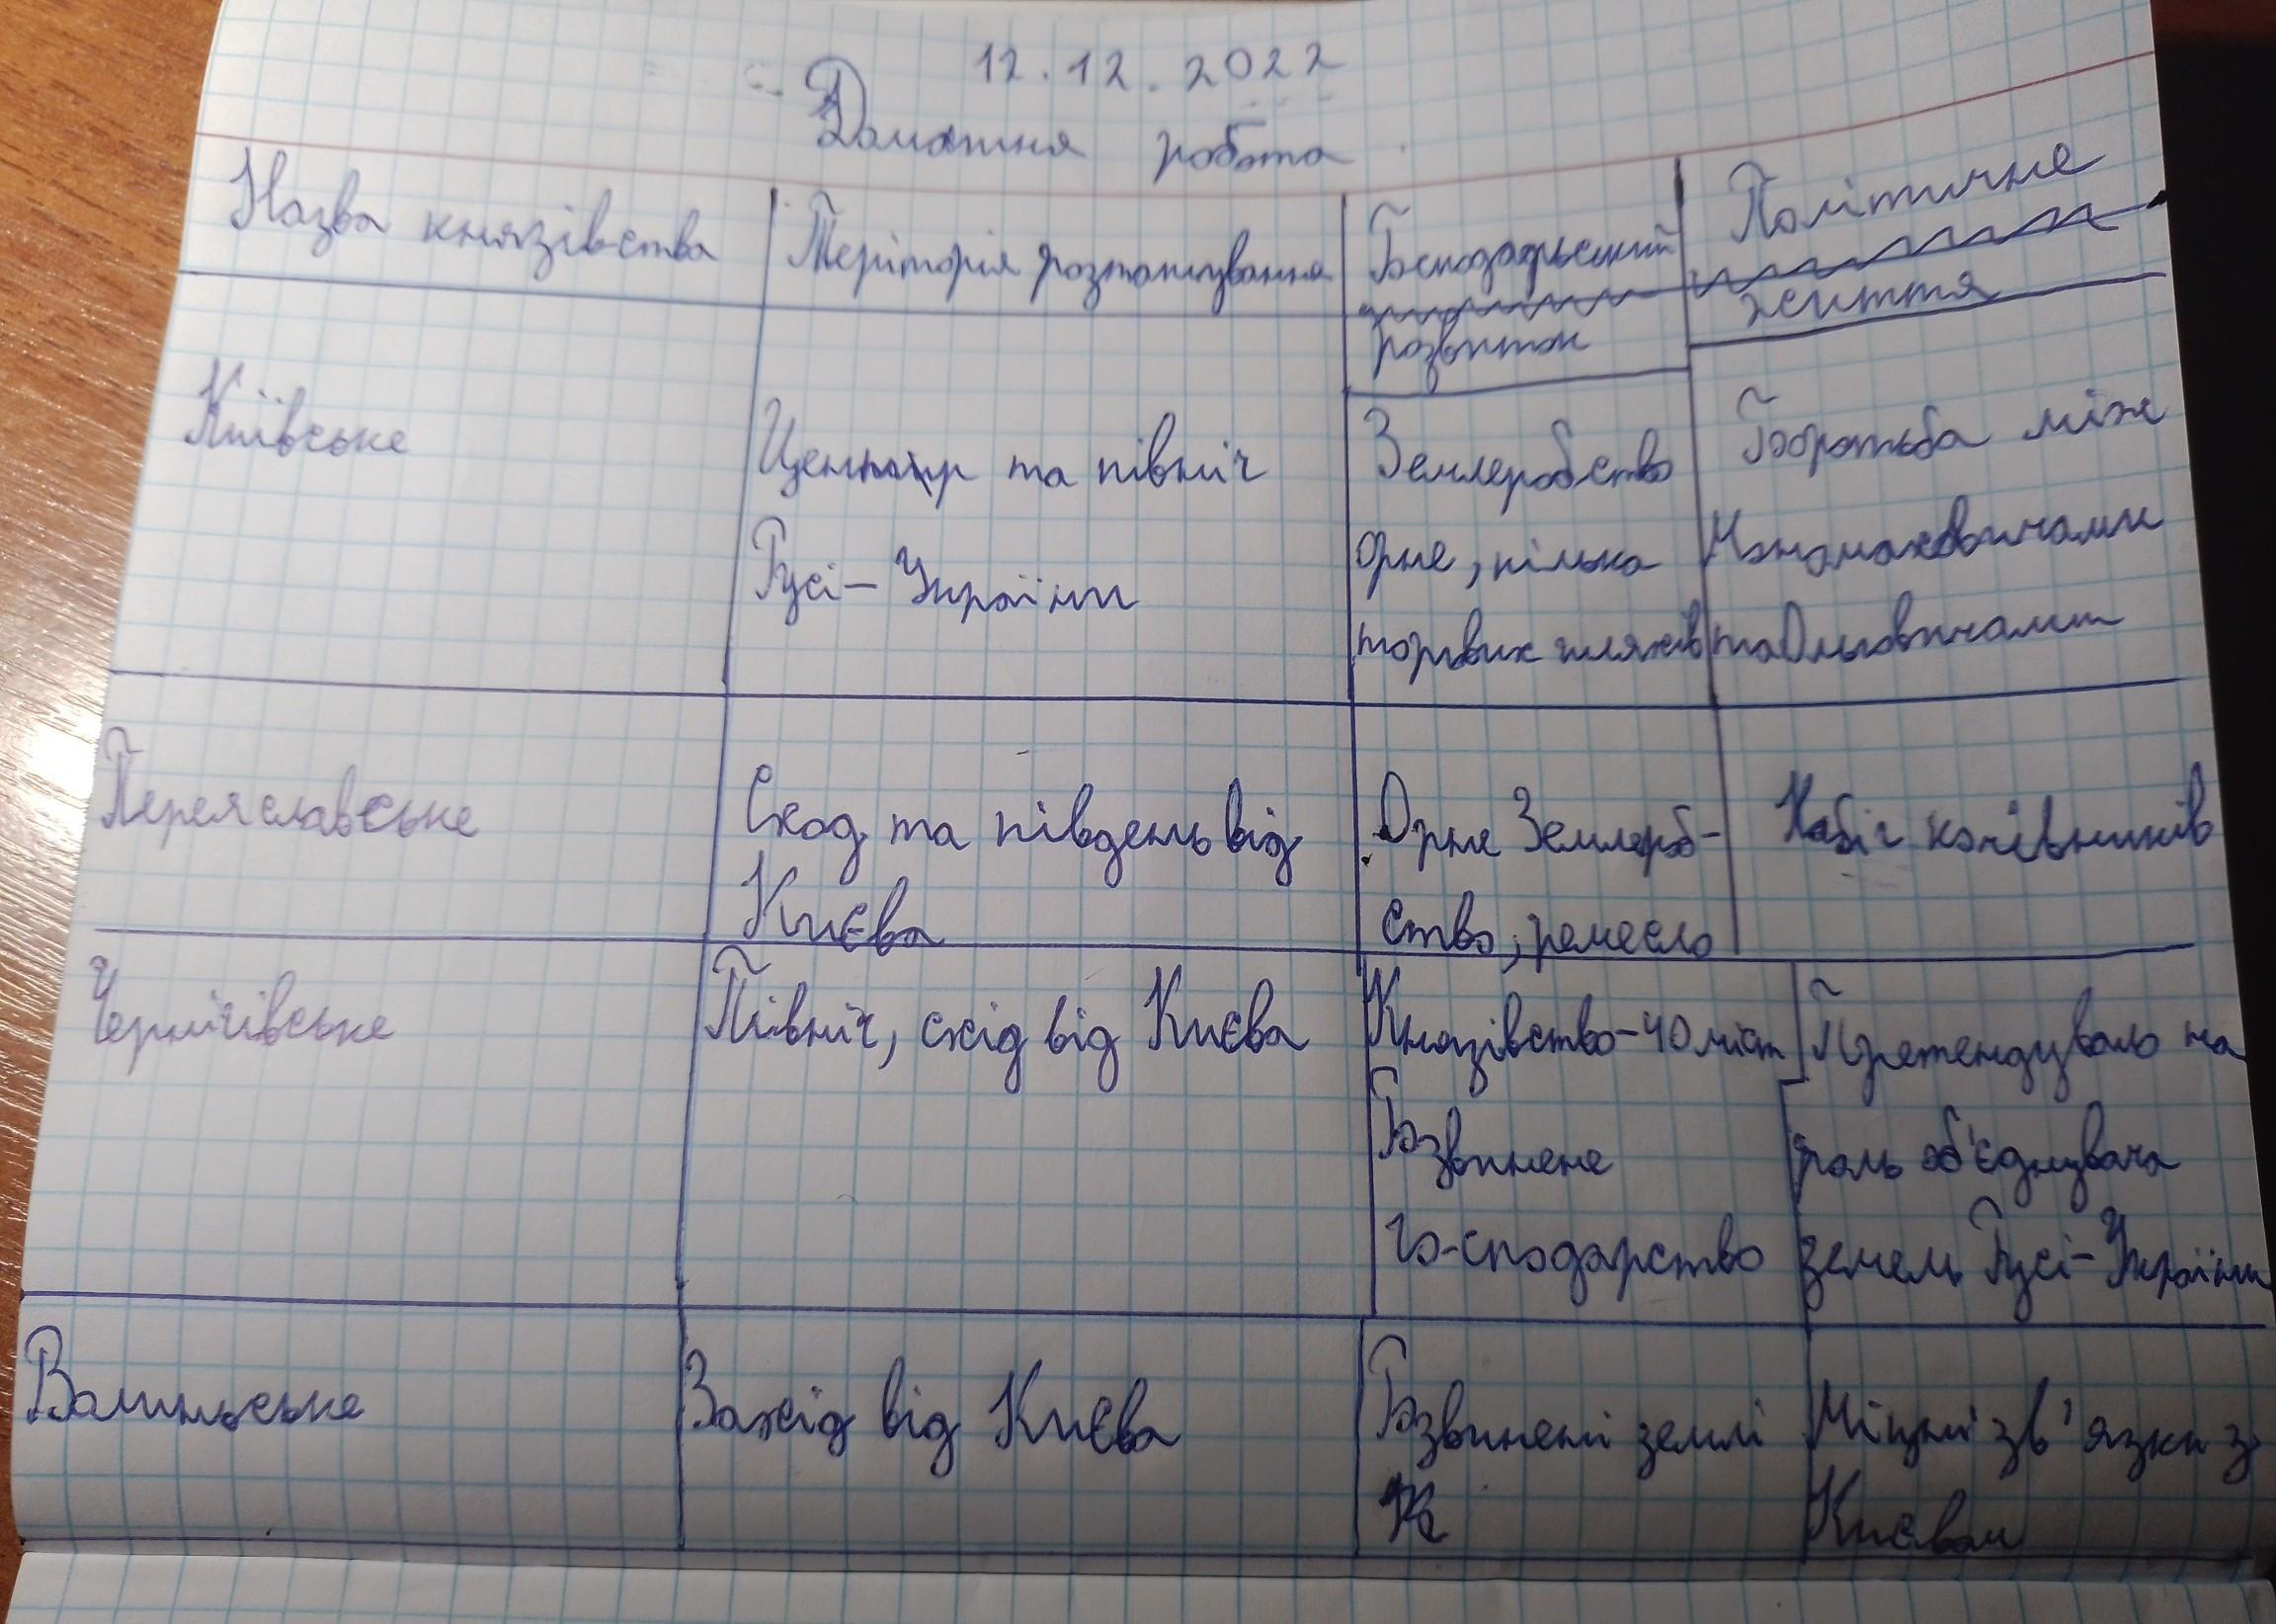 12.12.2022
Домашня робота
Назва князівства
Теріторія розташування
Господарьский
розвиток
Політичне
життя
Київське
Центр та північ
Русі - України
Землеробство
орне, кілька
торгових шляхів
Боротьба між
Мономаховичами
та Ольговичами
Переяславське
Сход та південь від
Києва
Орне Землероб-
ство, ремесло
Набіг кочівників
Чернігівське
Північ, схід від Києва
Князівство - 40 міст
Розвинене
го-сподарство
Претендувало на
роль об'єднувача
земель Русі - України
Волинське
Захід від Києва
Розвинені землі
Міцні зв'язки з
Києвом